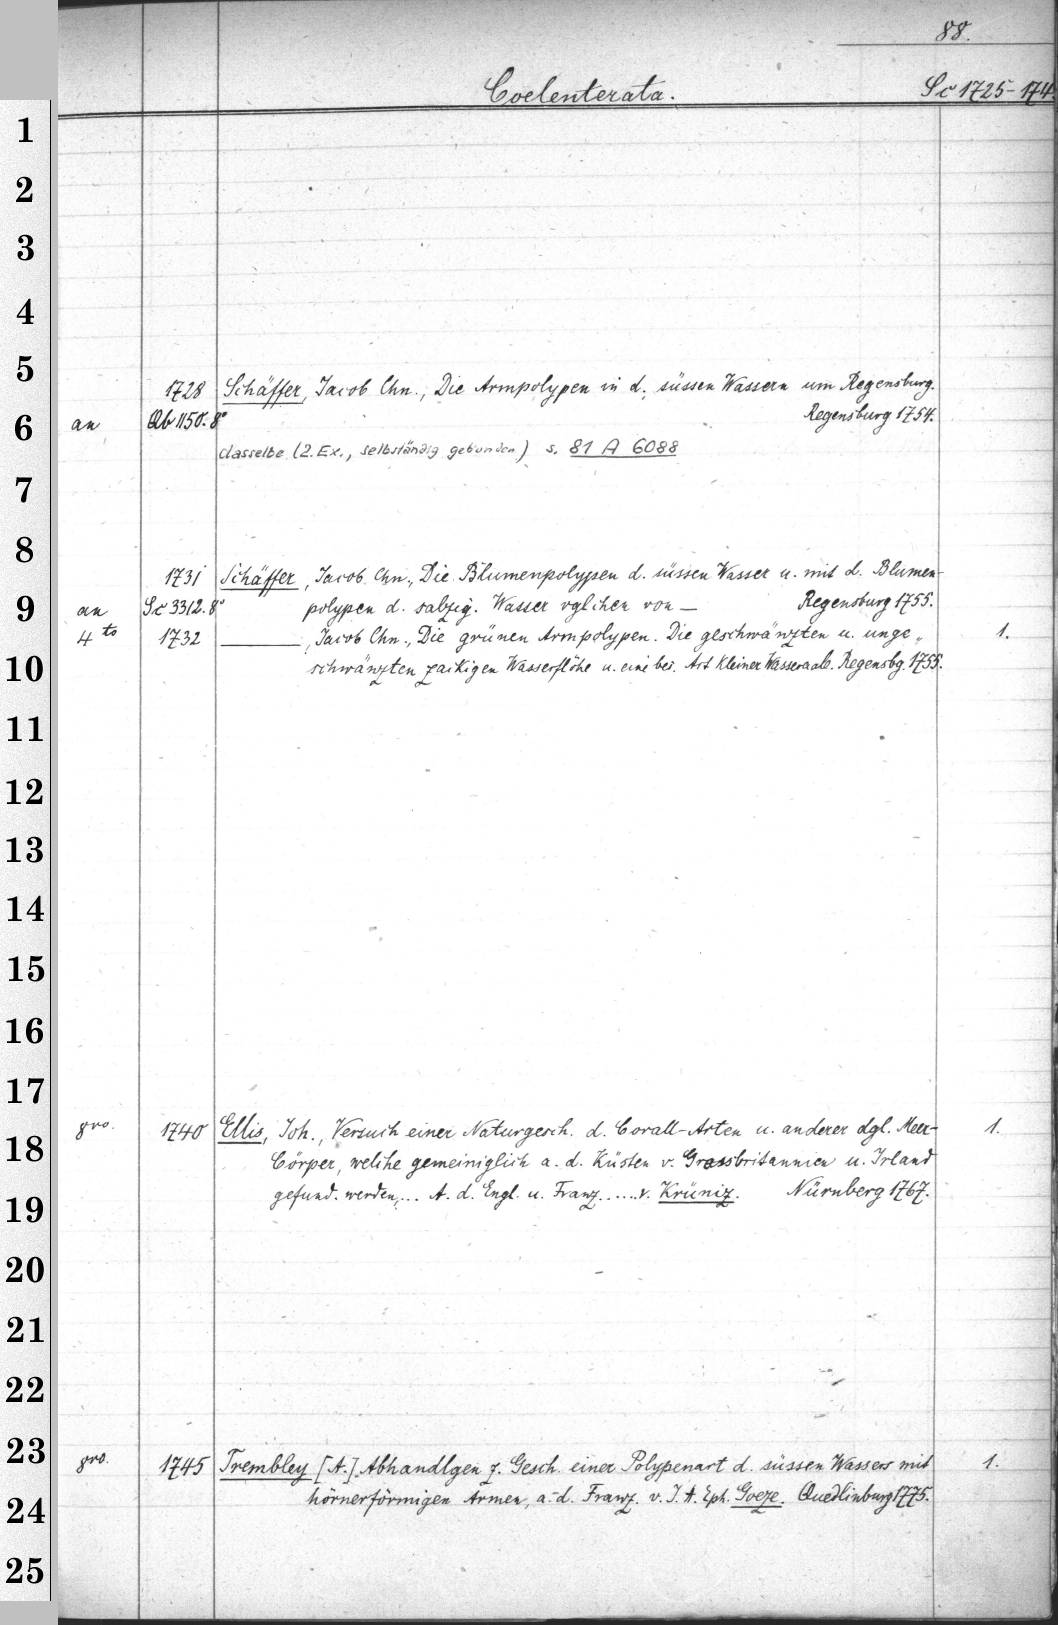 88.
Coelenterata. Sc 1725-174
1
2
3
4
5
1728 Schäffer, Jacob Chn., Die Armpolypen in d. süssen Wassern um Regensburg.
6 an Qb 1150. 8° Regensburg 1754.
dasselbe (2. Ex., selbständig gebunden) s. 81 A 6088
7
8
1731 Schäffer, Jacob Chn., Die Blumenpolypen d. süssen Wasser u. mit d. Blumen-
9 an Sc 3312. 8° polypen d. salzig. Wasser vglichen von — Regensburg 1755.
4to 1732 ———, Jacob Chn., Die grünen Armpolypen. Die geschwänzten u. unge„ 1.
10 schwänzten zackigen Wasserflöhe u. eine bes. Art kleiner Wasseraale. Regensbg. 1755.
11
12
13
14
15
16
17
8vo. 1740 Ellis, Joh., Versuch einer Naturgesch. d. Corall-Arten u. anderer dgl. Meer- 1.
18 Cörper, welche gemeiniglich a. d. Küsten v. Grossbritannien u. Irland
19 gefund. werden,... A. d. Engl. u. Franz...... v. Krüniz. Nürnberg 1767.
20
21
22
23 8vo. 1745 Trembley [A.] Abhandlgen z. Gesch. einer Polypenart d. süssen Wassers mit 1.
24 hörnerförmigen Armen, a. d. Franz. v. J. A. Eph. Goeze. Quedlinburg 1775.
25